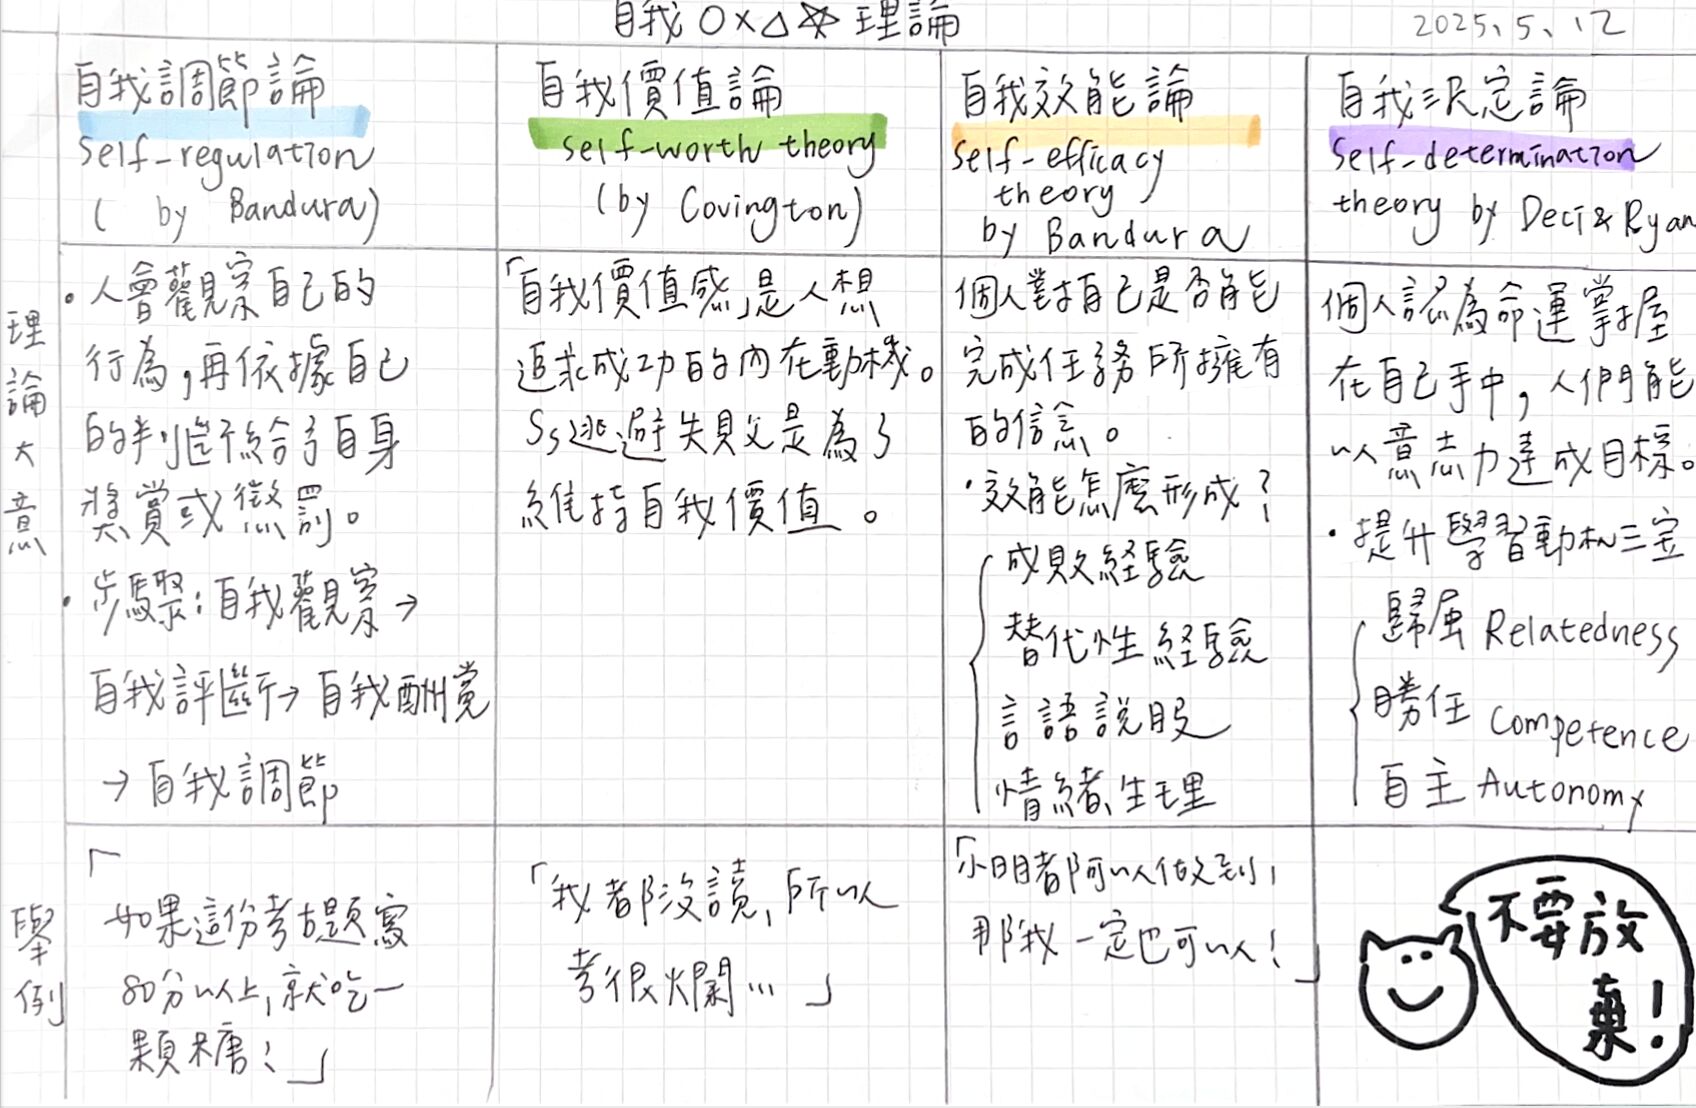 自我○×△☆理論
2025、5、12
自我調節論
self-regulation
( by Bandura)
自我價值論
self-worth theory
(by Covington)
自我效能論
self-efficacy
theory
by Bandura
自我決定論
self-determination
theory by Deci & Ryan
理論大意
・人會觀察自己的
行為,再依據自己
的判斷給予自身
獎賞或懲罰。
・步驟:自我觀察→
自我評斷→自我酬賞
→自我調節
「自我價值感」是人想
追求成功的內在動機。
Ss逃避失敗是為了
維持自我價值。
個人對自己是否能
完成任務所擁有
的信念。
・效能怎麼形成?
成敗経驗
替代性経驗
言語說服
情緒、生理
個人認為命運掌握
在自己手中,人們能
以意志力達成目標。
・提升學習動机三宝
歸屬 Relatedness
勝任 Competence
自主 Autonomy
舉例
「
如果這份考古題寫
80分以上,就吃一
顆糖!」
「我都沒讀,所以
考很爛…」
「小明都可以做到,
那我一定也可以!」
不要放
棄!